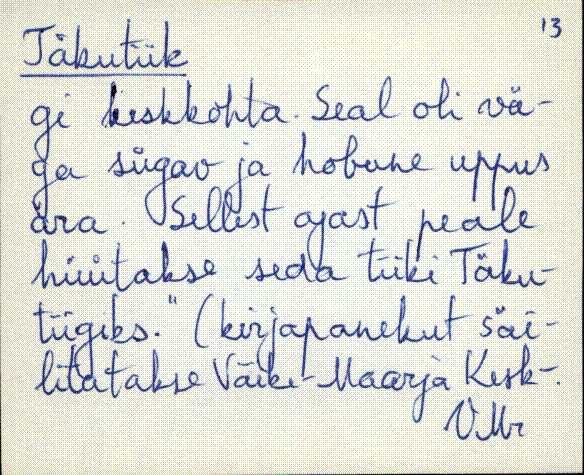 13
Täkutiik
gi keskkohta. Seal oli vä-
ga sügav ja hobune uppus
ära. Sellest ajast peale
hüütakse seda tiiki Täku-
tiigiks." (kirjapanekut säi-
litatakse Väike-Maarja Kesk-.
VMr